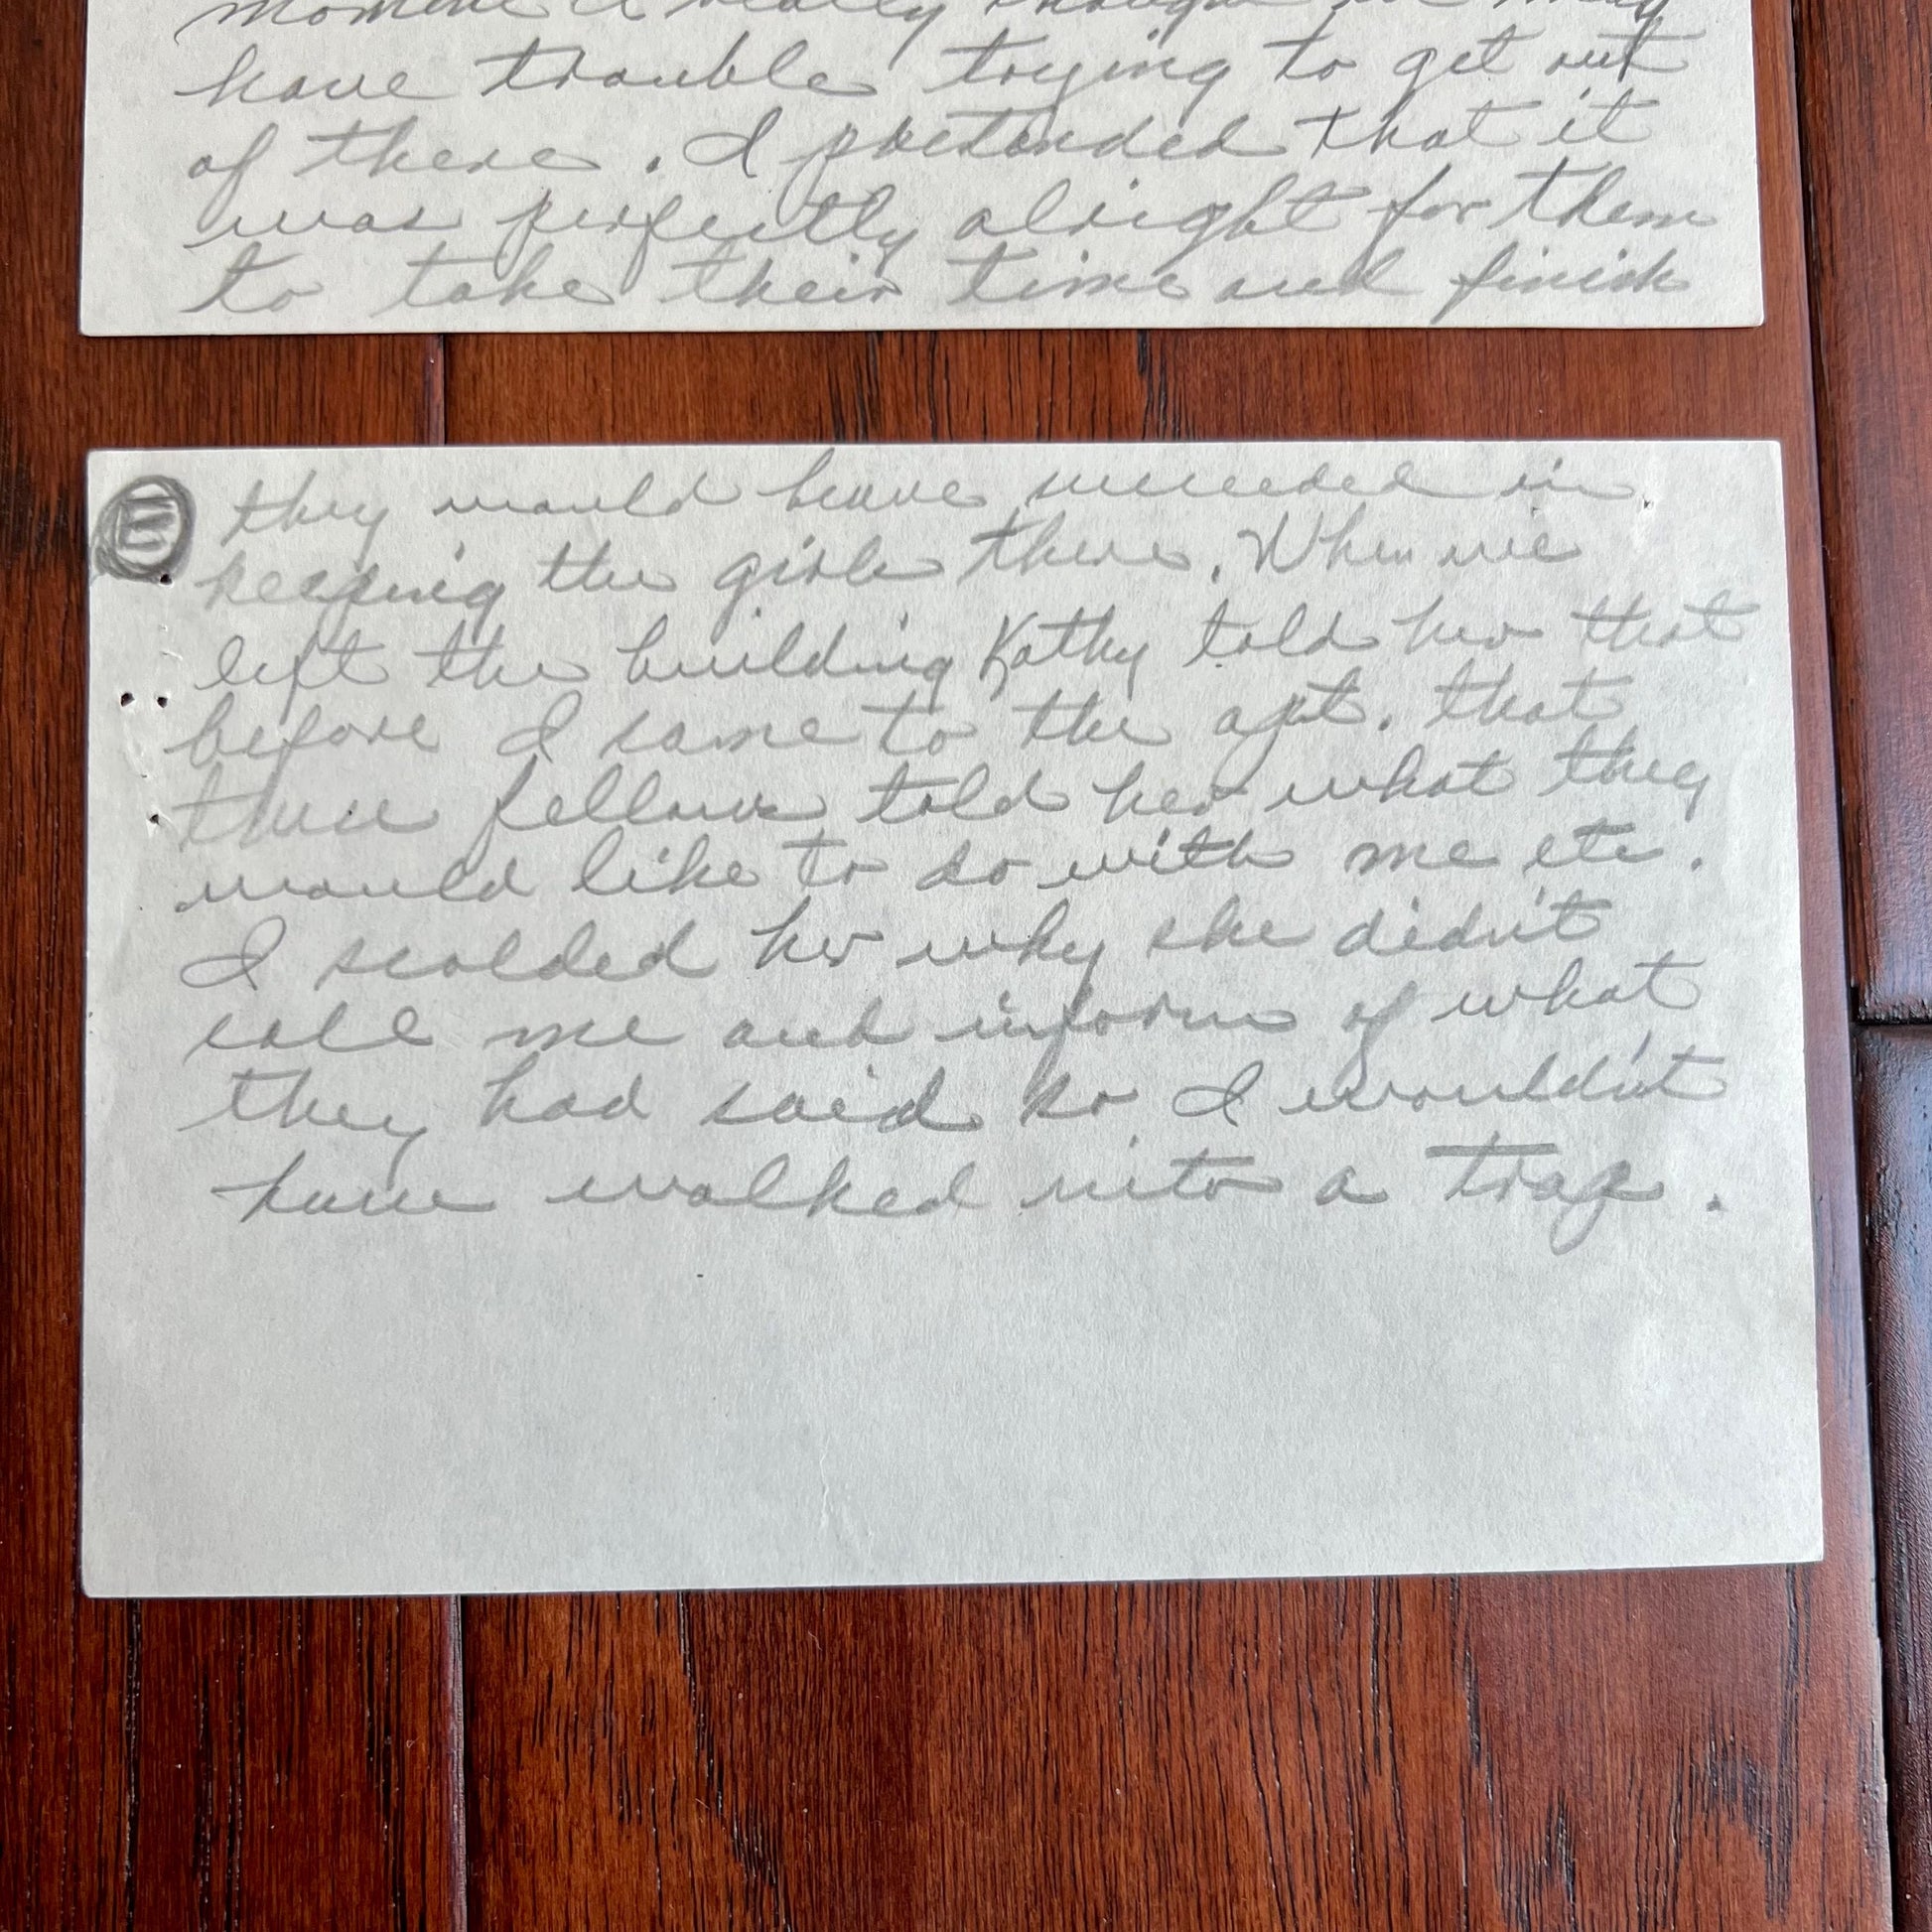 moment I really thought we may
have trouble trying to get out
of there. I pretended that it
was perfectly alright for them
to take their time and finish
E they would have succeeded in
keeping the girls there. When we
left the building Kathy told her that
before I came to the apt. that
these fellows told her what they
would like to do with me etc.
I scolded her why she didn't
call me and inform of what
they had said so I wouldn't
have walked into a trap.